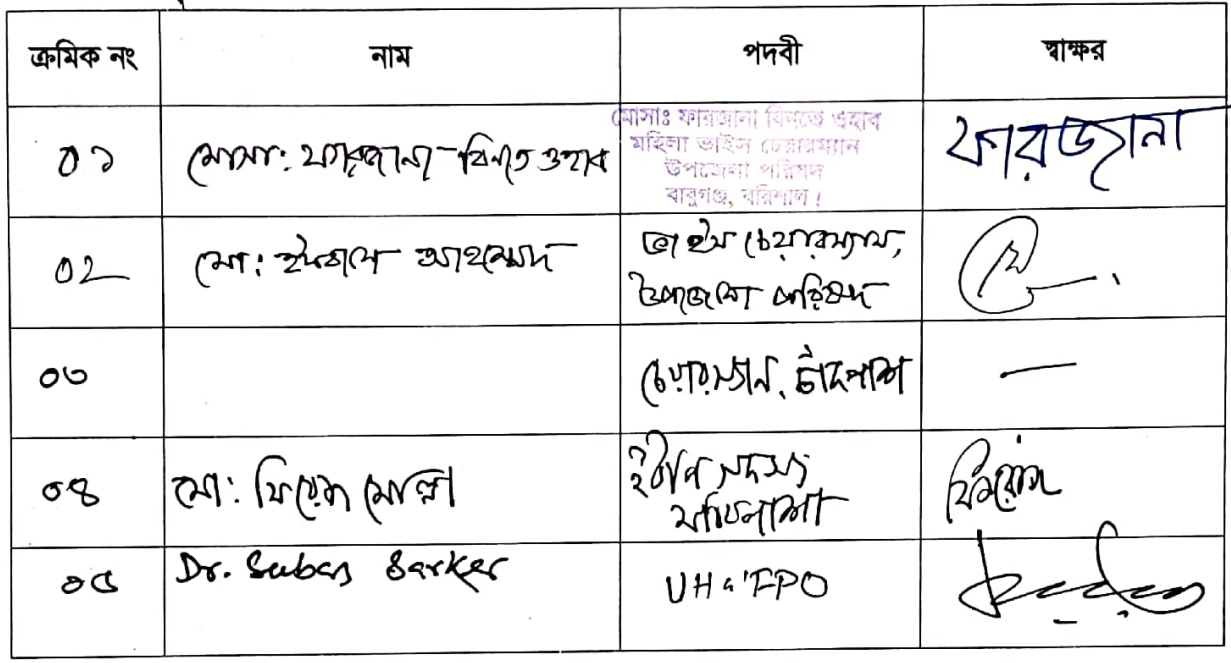 ক্রমিক নং নাম পদবী স্বাক্ষর
০১ মোসা: ফারজানা বিনতে ওহাব মোসাঃ ফারজানা বিনতে ওহাব ফারজানা
মহিলা ভাইস চেয়ারম্যান
উপজেলা পরিষদ
বাবুগঞ্জ, বরিশাল।
০২ মো: ইকবাল আহমেদ ভাইস চেয়ারম্যান,
উপজেলা পরিষদ
০৩ চেয়ারম্যান, চাঁদপাশা —
০৪ মো: ফিরোজ মোল্লা ইউপি সদস্য ফিরোজ
০৫ Dr. Subas Sarker UH&FPO